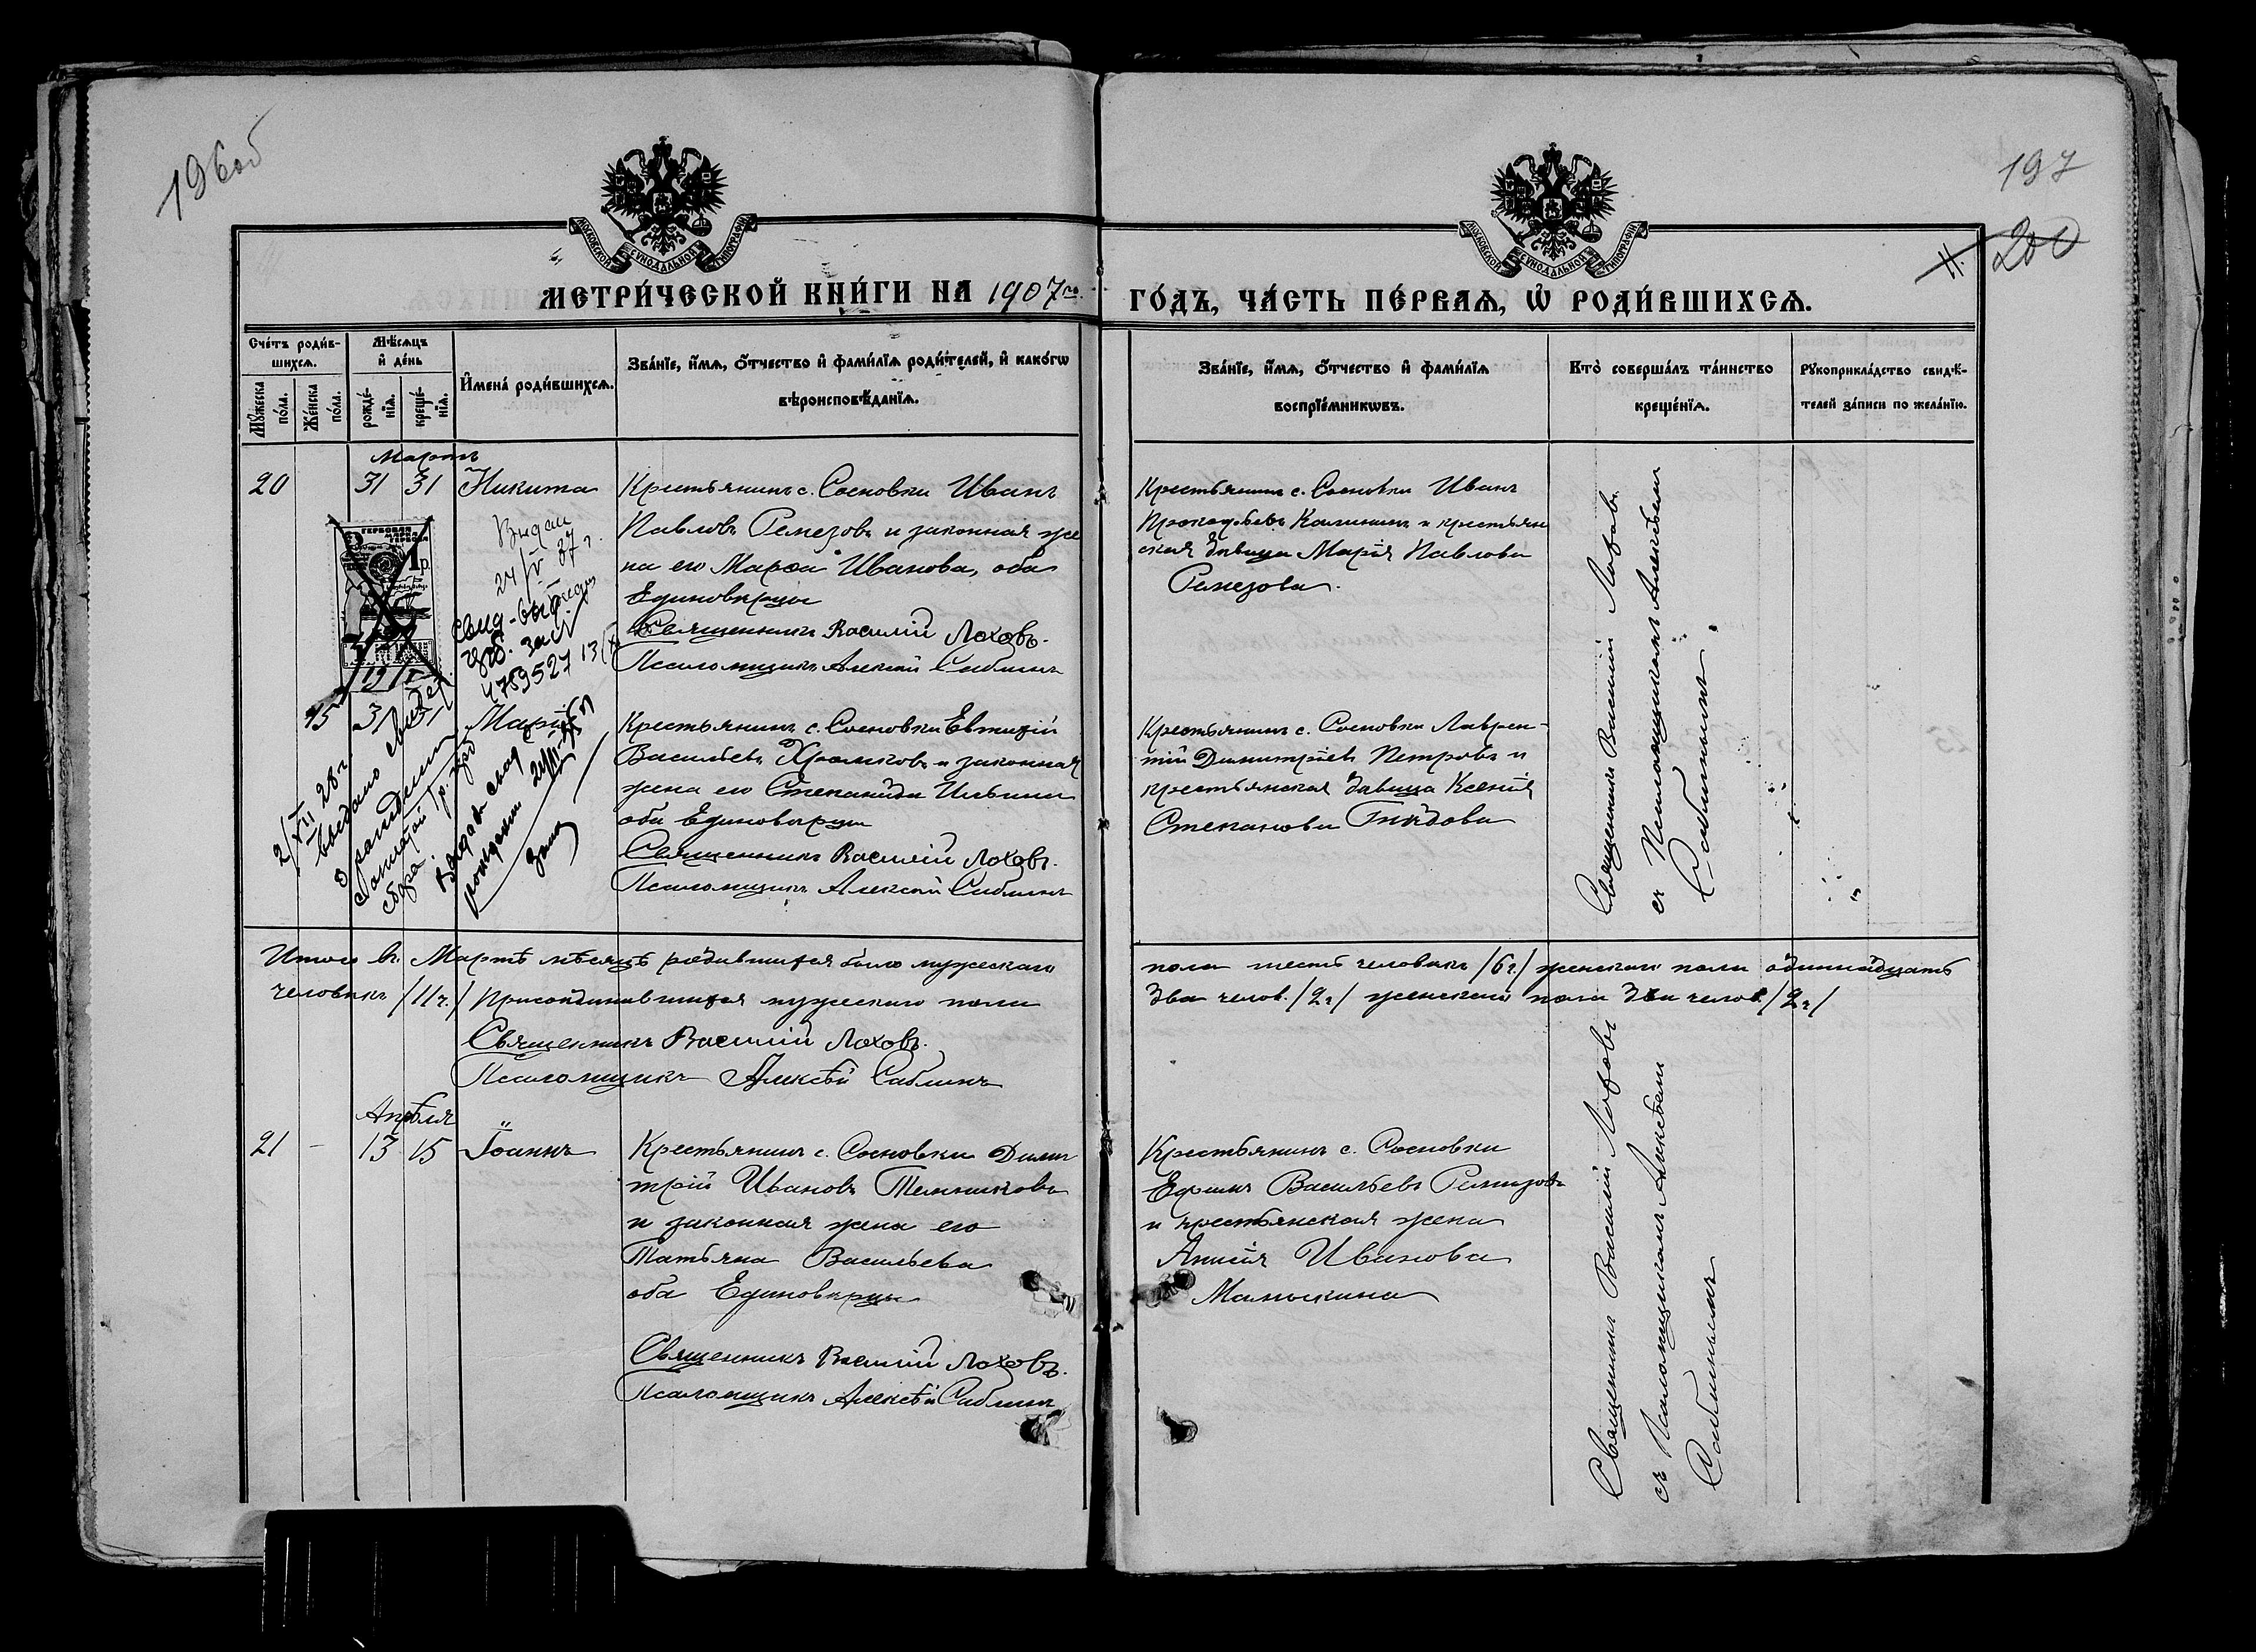 196об
197
200
МОСКОВСКОЙ СУНОДАЛЬНОЙ ТИПОГРАФІИ
МОСКОВСКОЙ СУНОДАЛЬНОЙ ТИПОГРАФІИ
МЕТРИ́ЧЕСКОЙ КНИ́ГИ НА 1907 го.
ГО́ДЪ, ЧА́СТЬ ПЕ́РВАѦ, Ѡ҆ РОДИ́ВШИХСѦ.
Сче́тъ роди́в-
шихсѧ.
Мꙋ́жеска по́ла.
Же́нска по́ла.
Мѣ́сѧцъ
и҆ де́нь
рожде́-нїѧ.
креще́-нїѧ.
И҆мена̀ роди́вшихсѧ.
Зва́нїе, и҆́мѧ, ѻ҆́тчество и҆ фами́лїѧ роди́телей, и҆ како́гѡ
вѣроисповѣ́данїѧ.
Зва́нїе, и҆́мѧ, ѻ҆́тчество и҆ фами́лїѧ
воспрїе́мникѡвъ.
Кто̀ соверша́лъ та́инство
креще́нїѧ.
Рꙋкоприкла́дство свидѣ́-
телей за́писи по жела́нїю.
Мартъ
20 31 31 Никита
Крестьянинъ с. Сосновки Иванъ
Павловъ Ремезовъ и законная же
на его Марѳа Иванова, оба
Единовѣрцы
Священникъ Василій Лоховъ.
Псаломщикъ Алексѣй Саблинъ
Крестьянинъ с. Сосновки Иванъ
Прокофьевъ Калининъ и крестьян
ская дѣвица Марія Павлова
Ремезова.
Священникъ Василій Лоховъ
съ Псаломщикомъ Алексѣемъ
Саблинымъ
1р.
Выдан
24/IV 37 г.
4789527
15 Марія
Крестьянинъ с. Сосновки Евтихій
Васильевъ Хромковъ и законная
жена его Степанида Ильина
оба Единовѣрцы
Священникъ Василій Лоховъ.
Псаломщикъ Алексѣй Саблинъ
Крестьянинъ с. Сосновки Лаврен-
тій Димитріевъ Петровъ и
крестьянская дѣвица Ксенія
Степанова
2/VII 28 г.
выдано
сбора
Итого въ Мартѣ мѣсяцѣ родившихся было мужескаго
пола шесть человѣкъ /6 ч./ женскаго пола одиннадцать
человѣкъ /11 ч./ Присоединившихся мужескаго пола
два челов. /2 ч/ женскаго пола два челов. /2 ч/
Священникъ Василій Лоховъ.
Псаломщикъ Алексѣй Саблинъ
Апрѣля
21 - 13 15 Іоаннъ
Крестьянинъ с. Сосновки Дими
трій Ивановъ Темниковъ
и законная жена его
Татьяна Васильева
оба Единовѣрцы
Священникъ Василій Лоховъ.
Псаломщикъ Алексѣй Саблинъ
Крестьянинъ с. Сосновки
Ефимъ Васильевъ Ремизовъ
и крестьянская жена
Анисія Иванова
Малыкина
Священникъ Василій Лоховъ
съ Псаломщикомъ Алексѣемъ
Саблинымъ